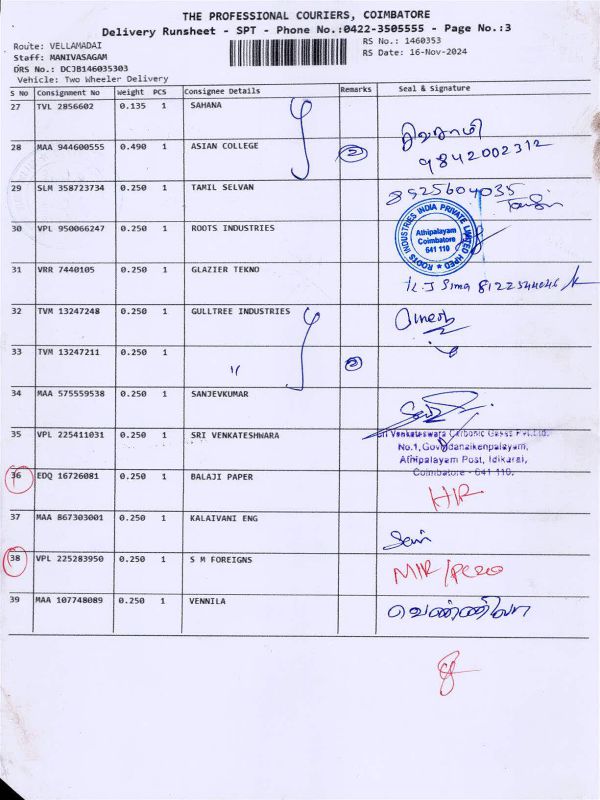 THE PROFESSIONAL COURIERS, COIMBATORE
Delivery Runsheet - SPT - Phone No.:0422-3505555 - Page No.:3
Route: VELLAMADAI
RS No.: 1460353
Staff: MANIVASAGAM
RS Date: 16-Nov-2024
DRS No.: DCJB146035303
Vehicle: Two Wheeler Delivery
S No Consignment No Weight PCS Consignee Details Remarks Seal & Signature
27 TVL 2856602 0.135 1 SAHANA
28 MAA 944600555 0.490 1 ASIAN COLLEGE 2 9842002312
29 SLM 358723734 0.250 1 TAMIL SELVAN 8925604035
30 VPL 950066247 0.250 1 ROOTS INDUSTRIES
ROOTS INDUSTRIES INDIA PRIVATE LIMITED
Athipalayam
Coimbatore
641 110
31 VRR 7440105 0.250 1 GLAZIER TEKNO
32 TVM 13247248 0.250 1 GULLTREE INDUSTRIES
33 TVM 13247211 0.250 1 " 2
34 MAA 575559538 0.250 1 SANJEVKUMAR
35 VPL 225411031 0.250 1 SRI VENKATESHWARA
Sri Venkateswara Carbonic Gases Pvt.Ltd.
No.1, Govindanaikenpalayam,
Athipalayam Post, Idikarai,
Coimbatore - 641 110.
36 EDQ 16726081 0.250 1 BALAJI PAPER
37 MAA 867303001 0.250 1 KALAIVANI ENG
38 VPL 225283950 0.250 1 S M FOREIGNS
39 MAA 107748089 0.250 1 VENNILA வெண்ணிலா